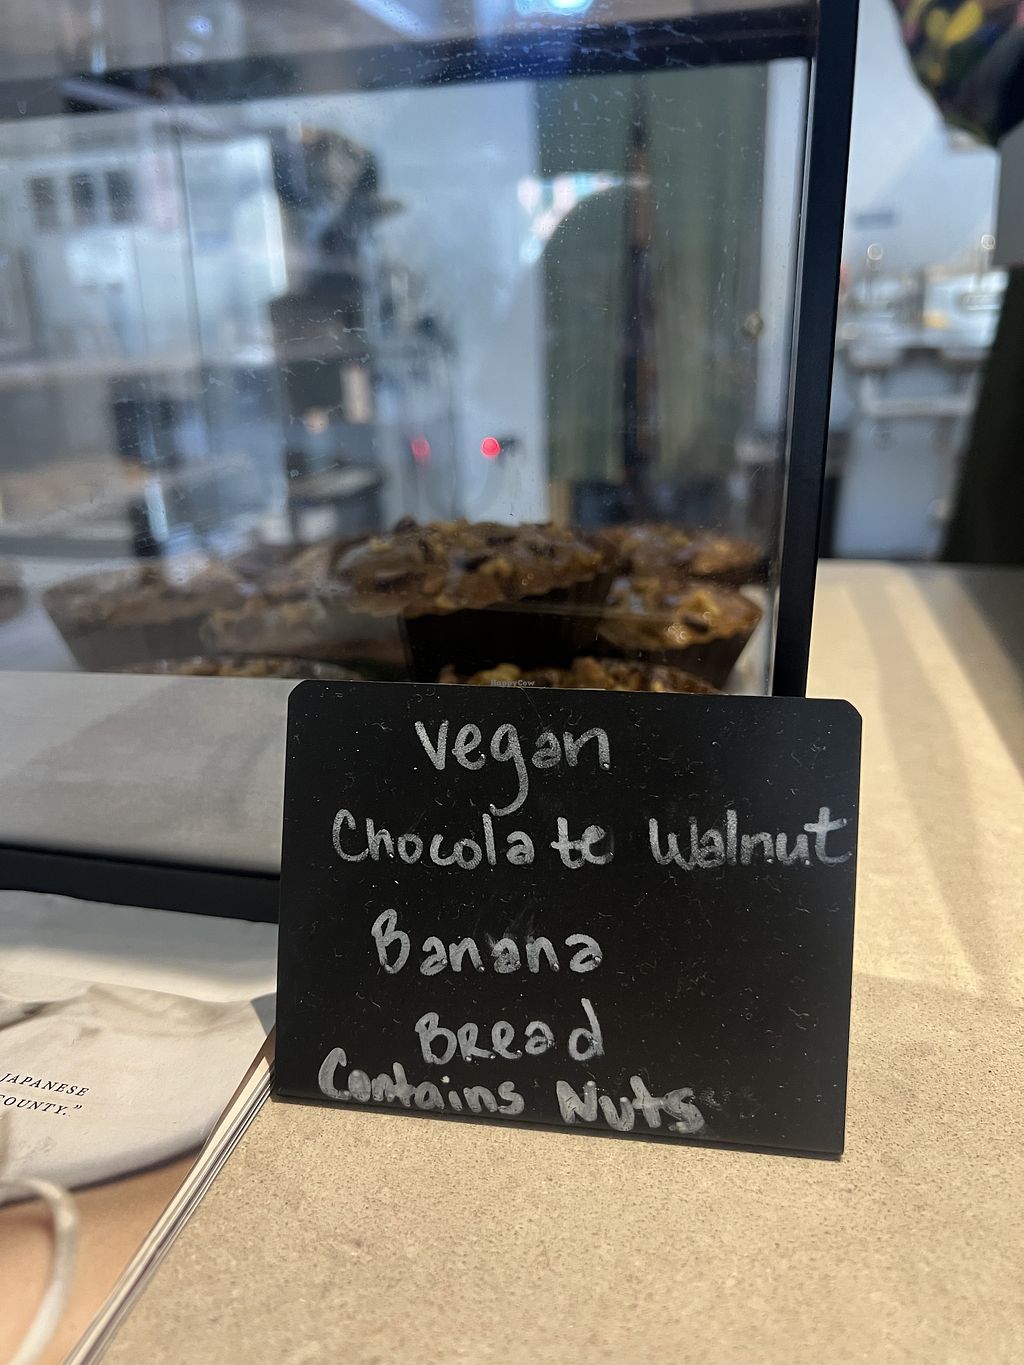 HappyCow
Vegan
Chocolate Walnut
Banana
Bread
Contains Nuts
JAPANESE
COUNTY.”